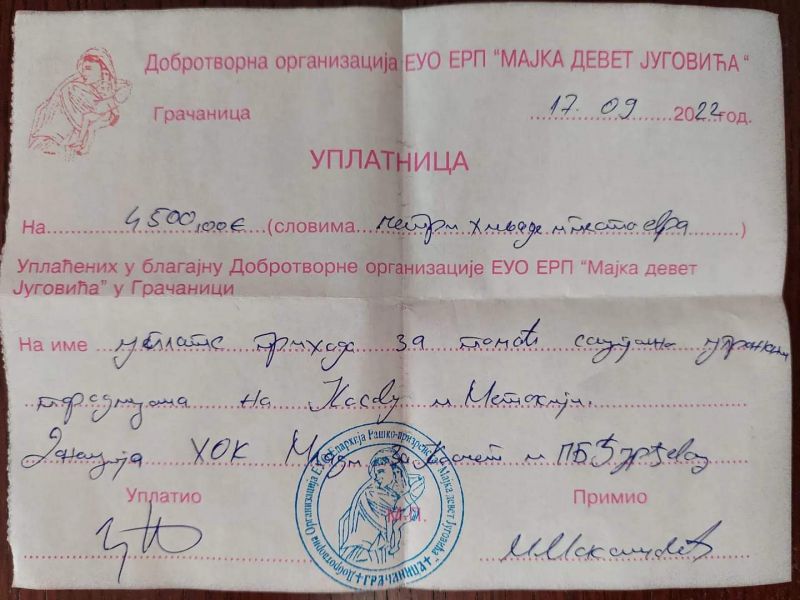 Добротворна организација ЕУО ЕРП "МАЈКА ДЕВЕТ ЈУГОВИЋА"
Грачаница 17. 09 2022 год.
УПЛАТНИЦА
На 4500,00€ (словима четри хиљаде и петсто евра)
Уплаћених у благајну Добротворне организације ЕУО ЕРП "Мајка девет
Југовића" у Грачаници
На име уплате прихода за помоћ социјално
породицама на Косову и Метохији.
Донација ХОК Млади за и ПБ Ђурђевац
Уплатио М.П. Примио
Добротворна Организација ЕУО Епархија Рашко-призренска "Мајка девет Југовића" Грачаница